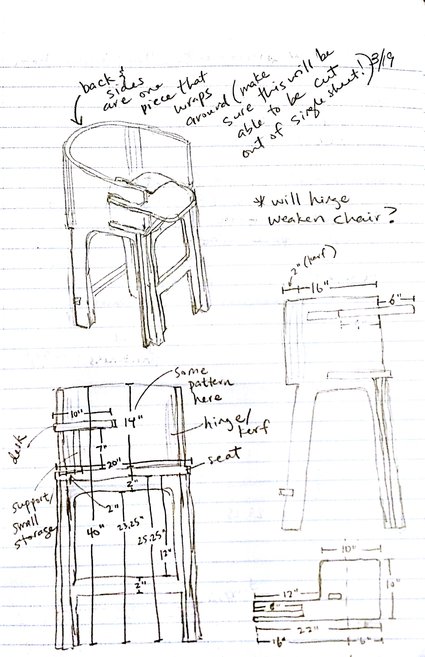 back &
sides
are one
piece that
wraps
around (make
sure this will be
able to be cut
out of single sheet!)
3/19
* will hinge
weaken chair?
2" (kerf)
16"
6"
same
pattern
here
10"
14"
hinge/
kerf
desk
7"
20"
seat
support/
small
storage
2"
2"
40"
23.25"
25.25"
12"
2"
10"
12"
10"
8"
22"
16"
6"